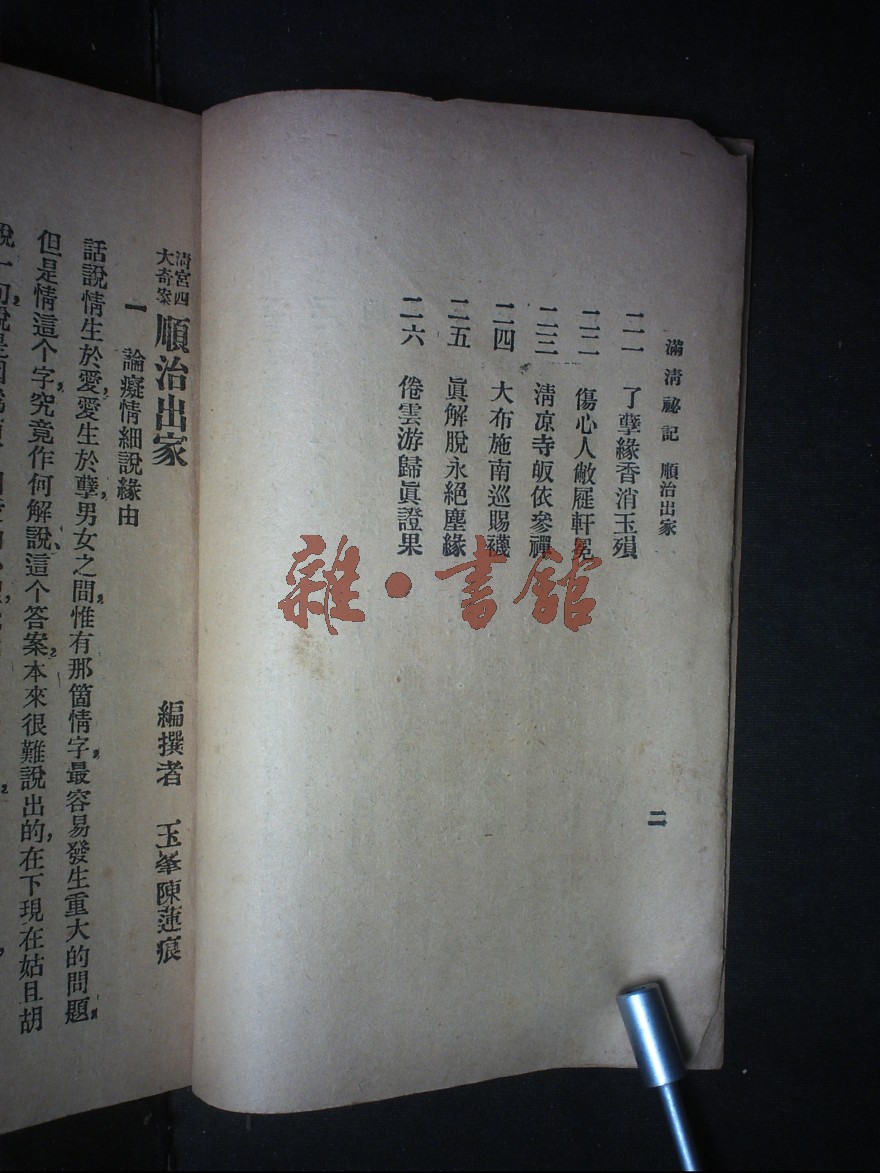 滿淸祕記 順治出家
二一 了孽緣香消玉殞
二二 傷心人敝屣軒冕
二三 淸凉寺皈依參禪
二四 大布施南巡賜襪
二五 眞解脫永絕塵緣
二六 倦雲游歸眞證果
二
雜·書館
淸宮四大奇案 順治出家
編撰者 玉峯陳蓮痕
一 論癡情細說緣由
話說情生於愛，愛生於孽，男女之間，惟有那箇情字，最容易發生重大的問題，
但是情這个字，究竟作何解說、這个答案，本來很難說出的，在下現在姑且胡
說一句，